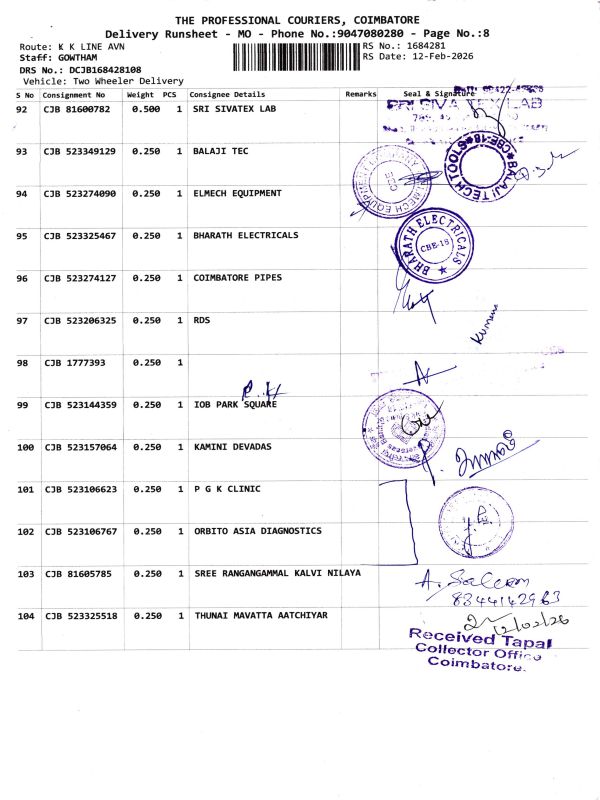 THE PROFESSIONAL COURIERS, COIMBATORE
Delivery Runsheet - MO - Phone No.:9047080280 - Page No.:8
Route: K K LINE AVN
RS No.: 1684281
Staff: GOWTHAM
RS Date: 12-Feb-2026
DRS No.: DCJB168428108
Vehicle: Two Wheeler Delivery
S No Consignment No Weight PCS Consignee Details Remarks Seal & Signature
92 CJB 81600782 0.500 1 SRI SIVATEX LAB
SRI SIVA TEX LAB
93 CJB 523349129 0.250 1 BALAJI TEC
BALAJI TECH TOOLS CBE-18
94 CJB 523274090 0.250 1 ELMECH EQUIPMENT
95 CJB 523325467 0.250 1 BHARATH ELECTRICALS
BHARATH ELECTRICALS CBE-18
96 CJB 523274127 0.250 1 COIMBATORE PIPES
97 CJB 523206325 0.250 1 RDS
98 CJB 1777393 0.250 1
99 CJB 523144359 0.250 1 IOB PARK SQUARE
100 CJB 523157064 0.250 1 KAMINI DEVADAS
101 CJB 523106623 0.250 1 P G K CLINIC
102 CJB 523106767 0.250 1 ORBITO ASIA DIAGNOSTICS
103 CJB 81605785 0.250 1 SREE RANGANGAMMAL KALVI NILAYA
A. Saleem
8344142963
104 CJB 523325518 0.250 1 THUNAI MAVATTA AATCHIYAR
12/02/26
Received Tapal
Collector Office
Coimbatore.